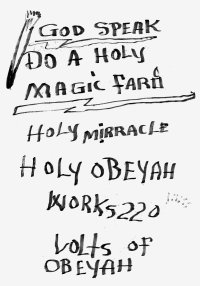 GOD SPEAK
DO A HOLY
MAGIC FARD
HOLY MIRRACLE
HOLY OBEYAH
WORKS 220
VOLTS OF
OBEYAH